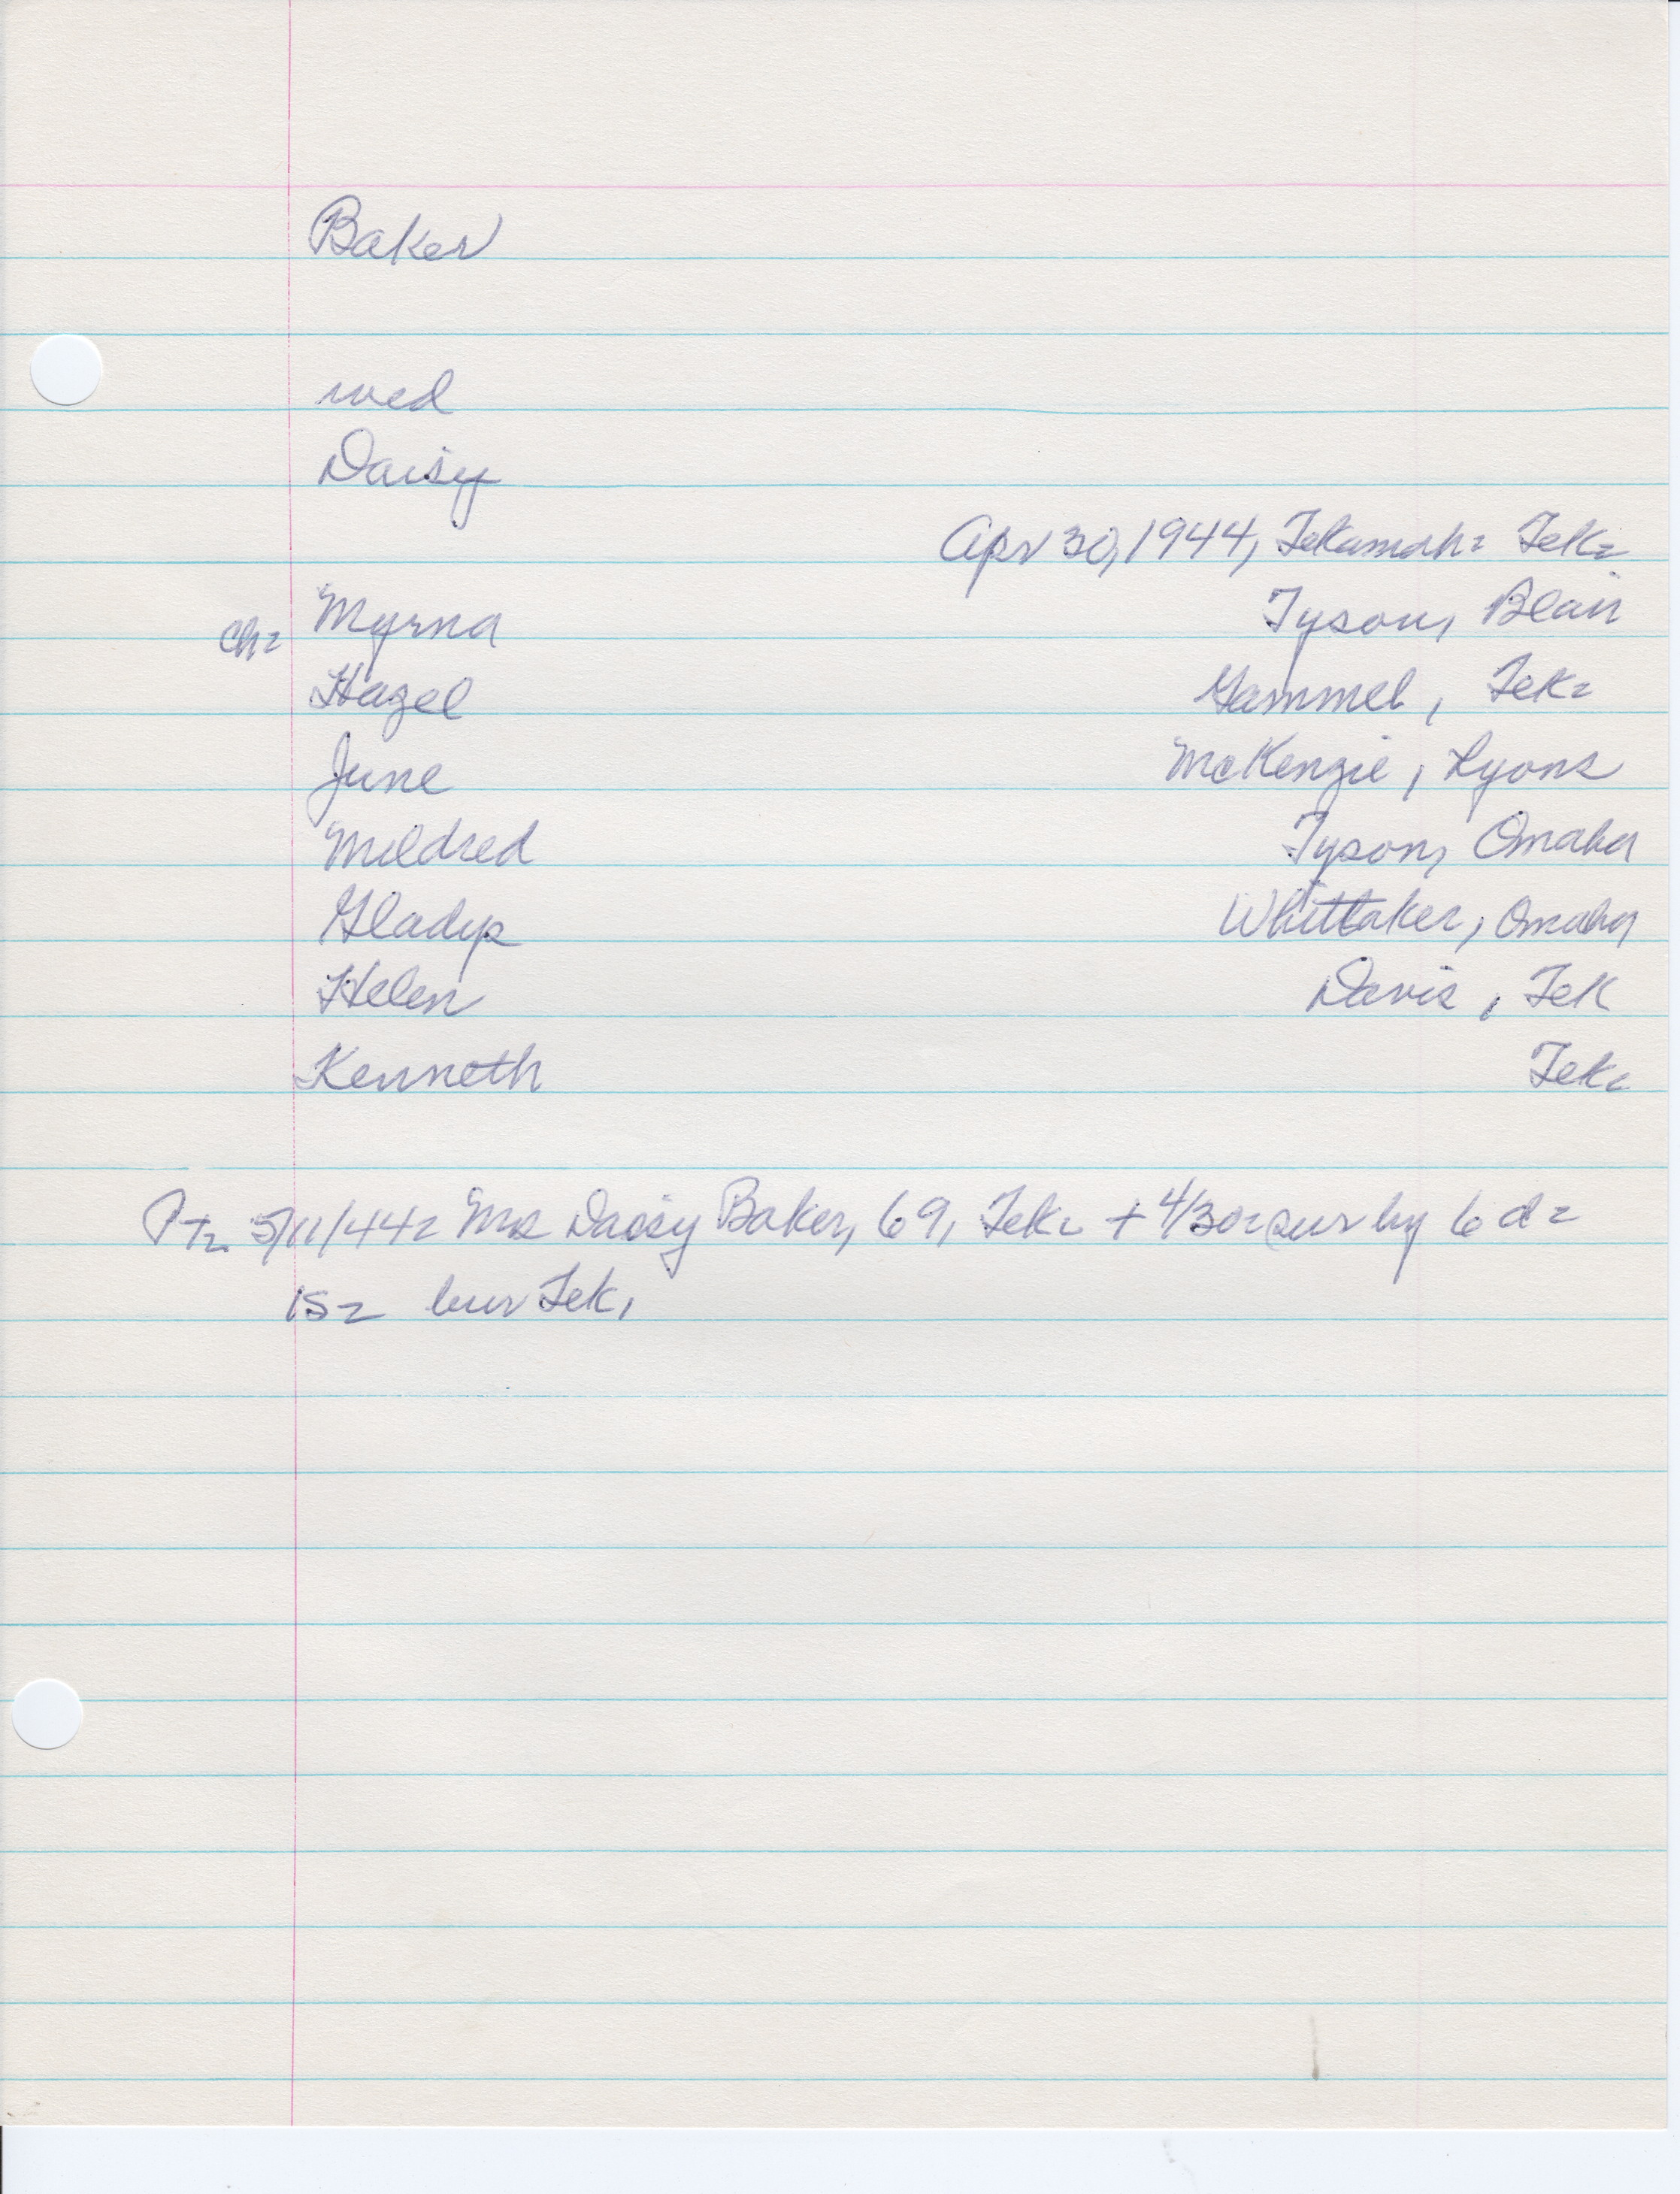 Baker
wed
Daisy
Apr 30, 1944, Tekamah= Tek=
ch= Myrna Tyson, Blair
Hazel Gammel, Tek=
June McKenzie, Lyons
Mildred Tyson, Omaha
Gladys Whittaker, Omaha
Helen Davis, Tek
Kenneth Tek=
Pt= 5/11/44= Mrs Daisy Baker, 69, Tek= + 4/30= sur by 6 d=
1s= bur Tek,